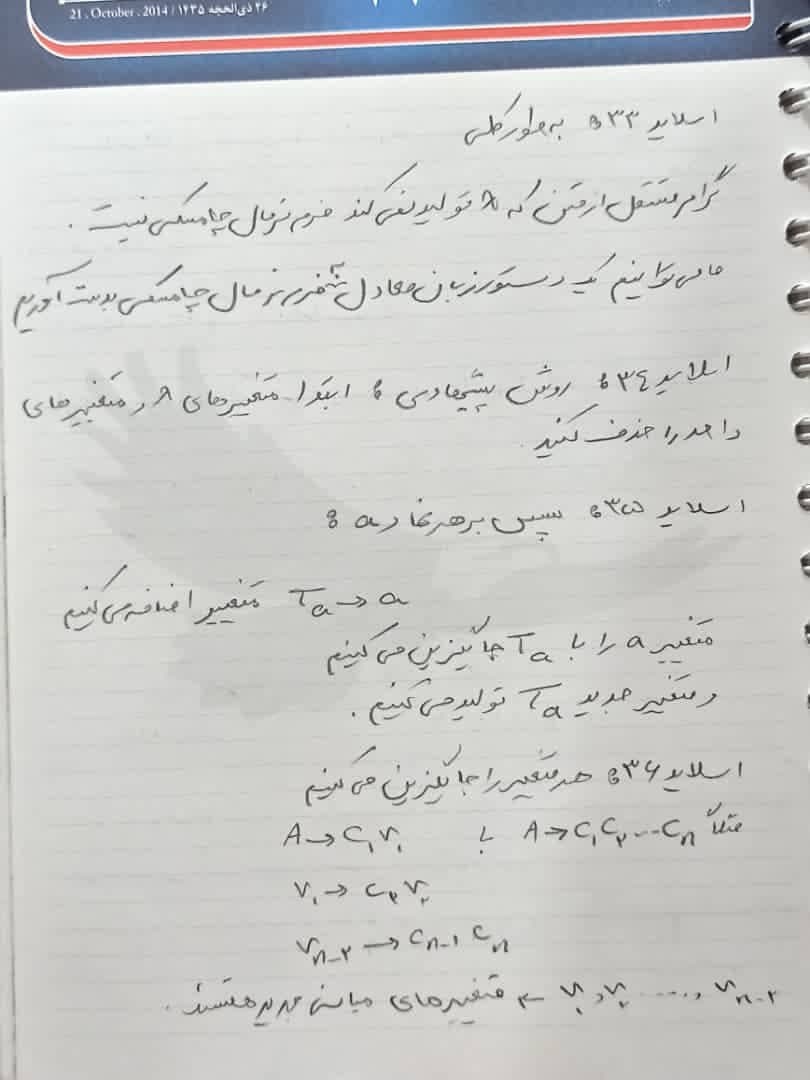 21 . October . 2014 / ۲۶ ذی‌الحجه ۱۴۳۵
اسلاید ۳۳: به طور کلی
گرامر مستقل از متن که λ تولید نمی کند فرم نرمال چامسکی نیست .
ما می توانیم یک دستور زبان معادل به فرم نرمال چامسکی بدست آوریم
اسلاید ۳۴: روش پیشنهادی : ابتدا متغیرهای λ و متغیرهای
واحد را حذف کنید.
اسلاید ۳۵: سپس بر هر نماد a :
Ta → a متغییر اضافه می کنیم
متغییر a را با Ta جایگزین می کنیم
و متغییر جدید Ta تولید می کنیم .
اسلاید ۳۶: هر متغییر را جایگزین می کنیم
مثلاً A → C₁C₂ ... Cn با A → C₁V₁
V₁ → C₂V₂
Vn-۲ → Cn-۱ Cn
V₁, V₂ ...., Vn-۲ متغیرهای میانی جدید هستند .